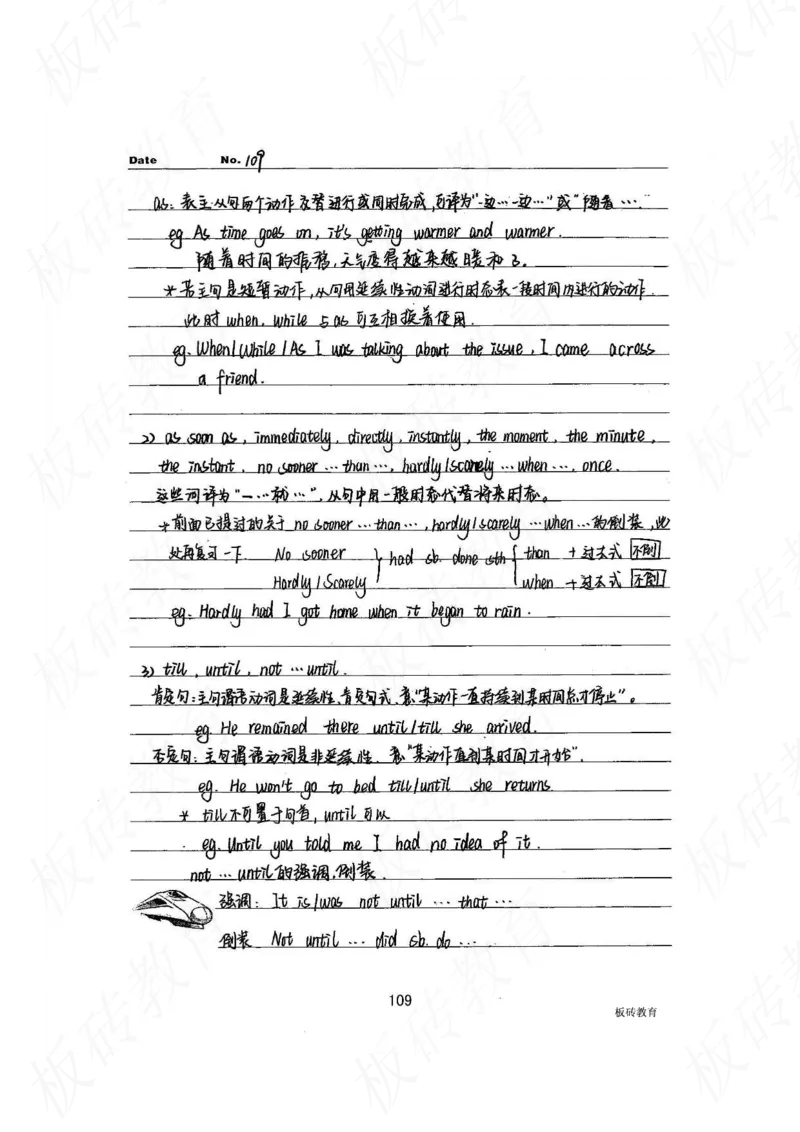 Date No. 109
as: 表主.从句两个动作交替进行或同时完成,可译为"一边…一边…"或"随着…."
eg As time goes on, it's getting warmer and warmer.
随着时间的推移,天气变得越来越暖和了。
*若主句是短暂动作,从句用延续性动词进行时态表一段时间内进行的动作.
此时when, while 与as可互相换着使用.
eg. When/While/As I was talking about the issue, I came across
a friend.
2) as soon as, immediately, directly, instantly, the moment, the minute,
the instant, no sooner …than…, hardly/scarely …when…, once.
这些词译为"一…就…",从句中用一般时态代替将来时态。
*前面已提过的关于 no sooner …than…, hardly/scarely …when…的倒装,此
处再复习一下 No sooner } had sb. done sth { than +过去式 不倒
Hardly/Scarely when +过去式 不倒
eg: Hardly had I got home when it began to rain.
3) till, until, not …until.
肯定句:主句谓语动词是延续性,肯定句式,意"某动作一直持续到某时间点才停止"。
eg. He remained there until/till she arrived.
否定句: 主句谓语动词是非延续性. 意"某动作直到某时间才开始".
eg. He won't go to bed till/until she returns.
* till不可置于句首, until可以
eg. Until you told me I had no idea of it.
not …until的强调,倒装.
强调: It is/was not until …that…
倒装 Not until … did sb. do …
109
板砖教育